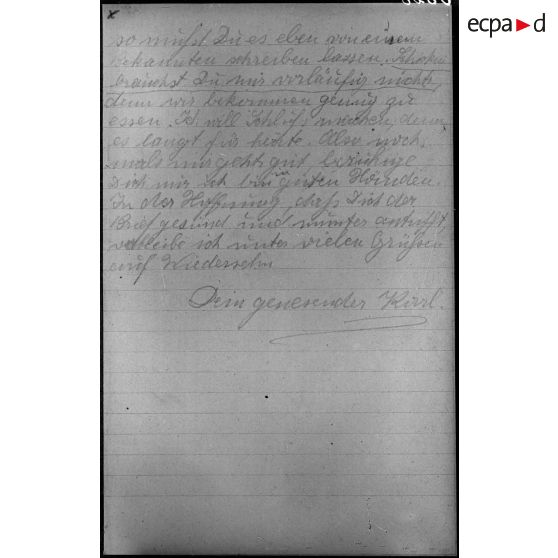 so mußt Du es eben von einem
Bekannten schreiben lassen. Schicken
brauchst Du mir vorläufig nichts,
denn wir bekommen genug zu
essen. Ich will Schluß machen, denn
es langt für heute. Also noch
mals mir gehts gut, beruhige
Dich nur ich bin in guten Händen.
In der Hoffnung, daß Dich der
Brief gesund und munter antrifft,
verbleibe ich unter vielen Grüßen
auf Wiedersehn
Dein genesender Karl.
ecpad